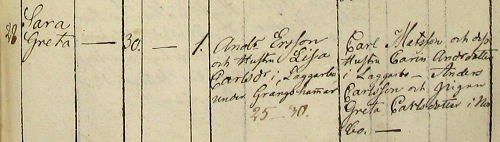 28 Sara
Greta — 30. — 1.
Andr. Ersson
och Hustru Lisa
Carlsdr i Laggarbo
under Grängshammar
25 — 30.
Carl Matsson och dess
Hustru Carin Andersdotter
i Laggarbo — Anders
Carlsson och Pigan
Greta Carlsdotter i
bo. —